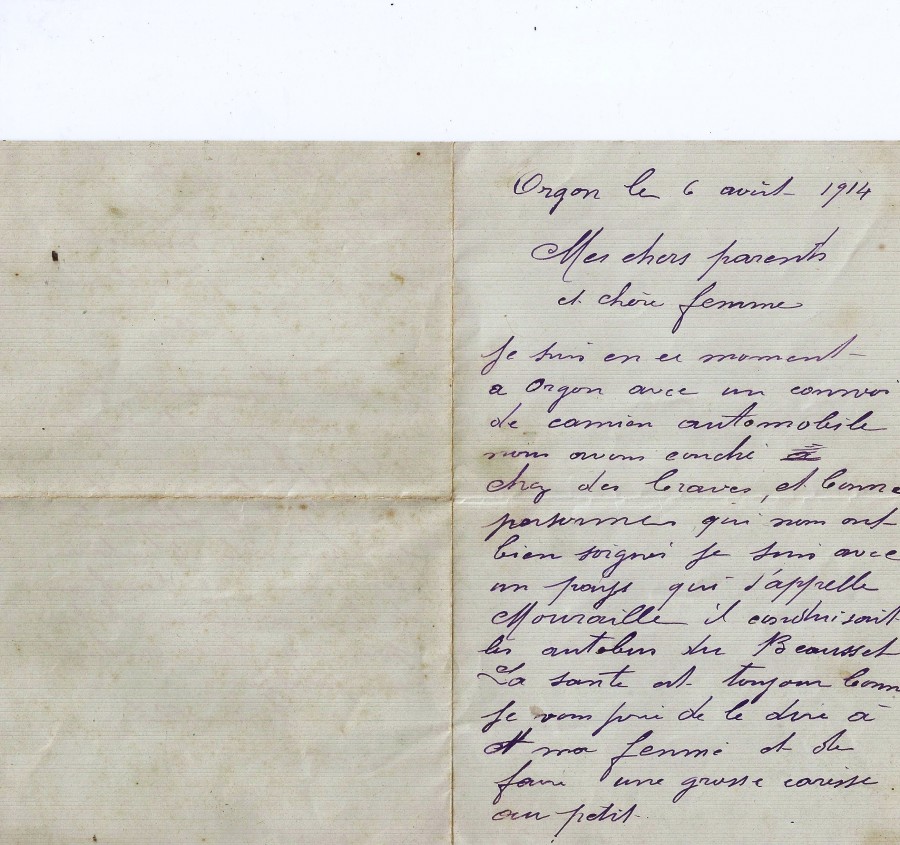 Orgon le 6 août 1914
Mes chers parents
et chère femme
Je suis en ce moment
a Orgon avec un convoi
de camion automobile
nous avons couché
chez des braves, et bonne
personnes qui nous ont
bien soignés je suis avec
un pays qui s'appelle
Mouraille il conduisait
les autobus du Beausset
La sante est toujour bonn
Je vous prie de le dire à
ma femme et de
faire une grosse caresse
au petit.